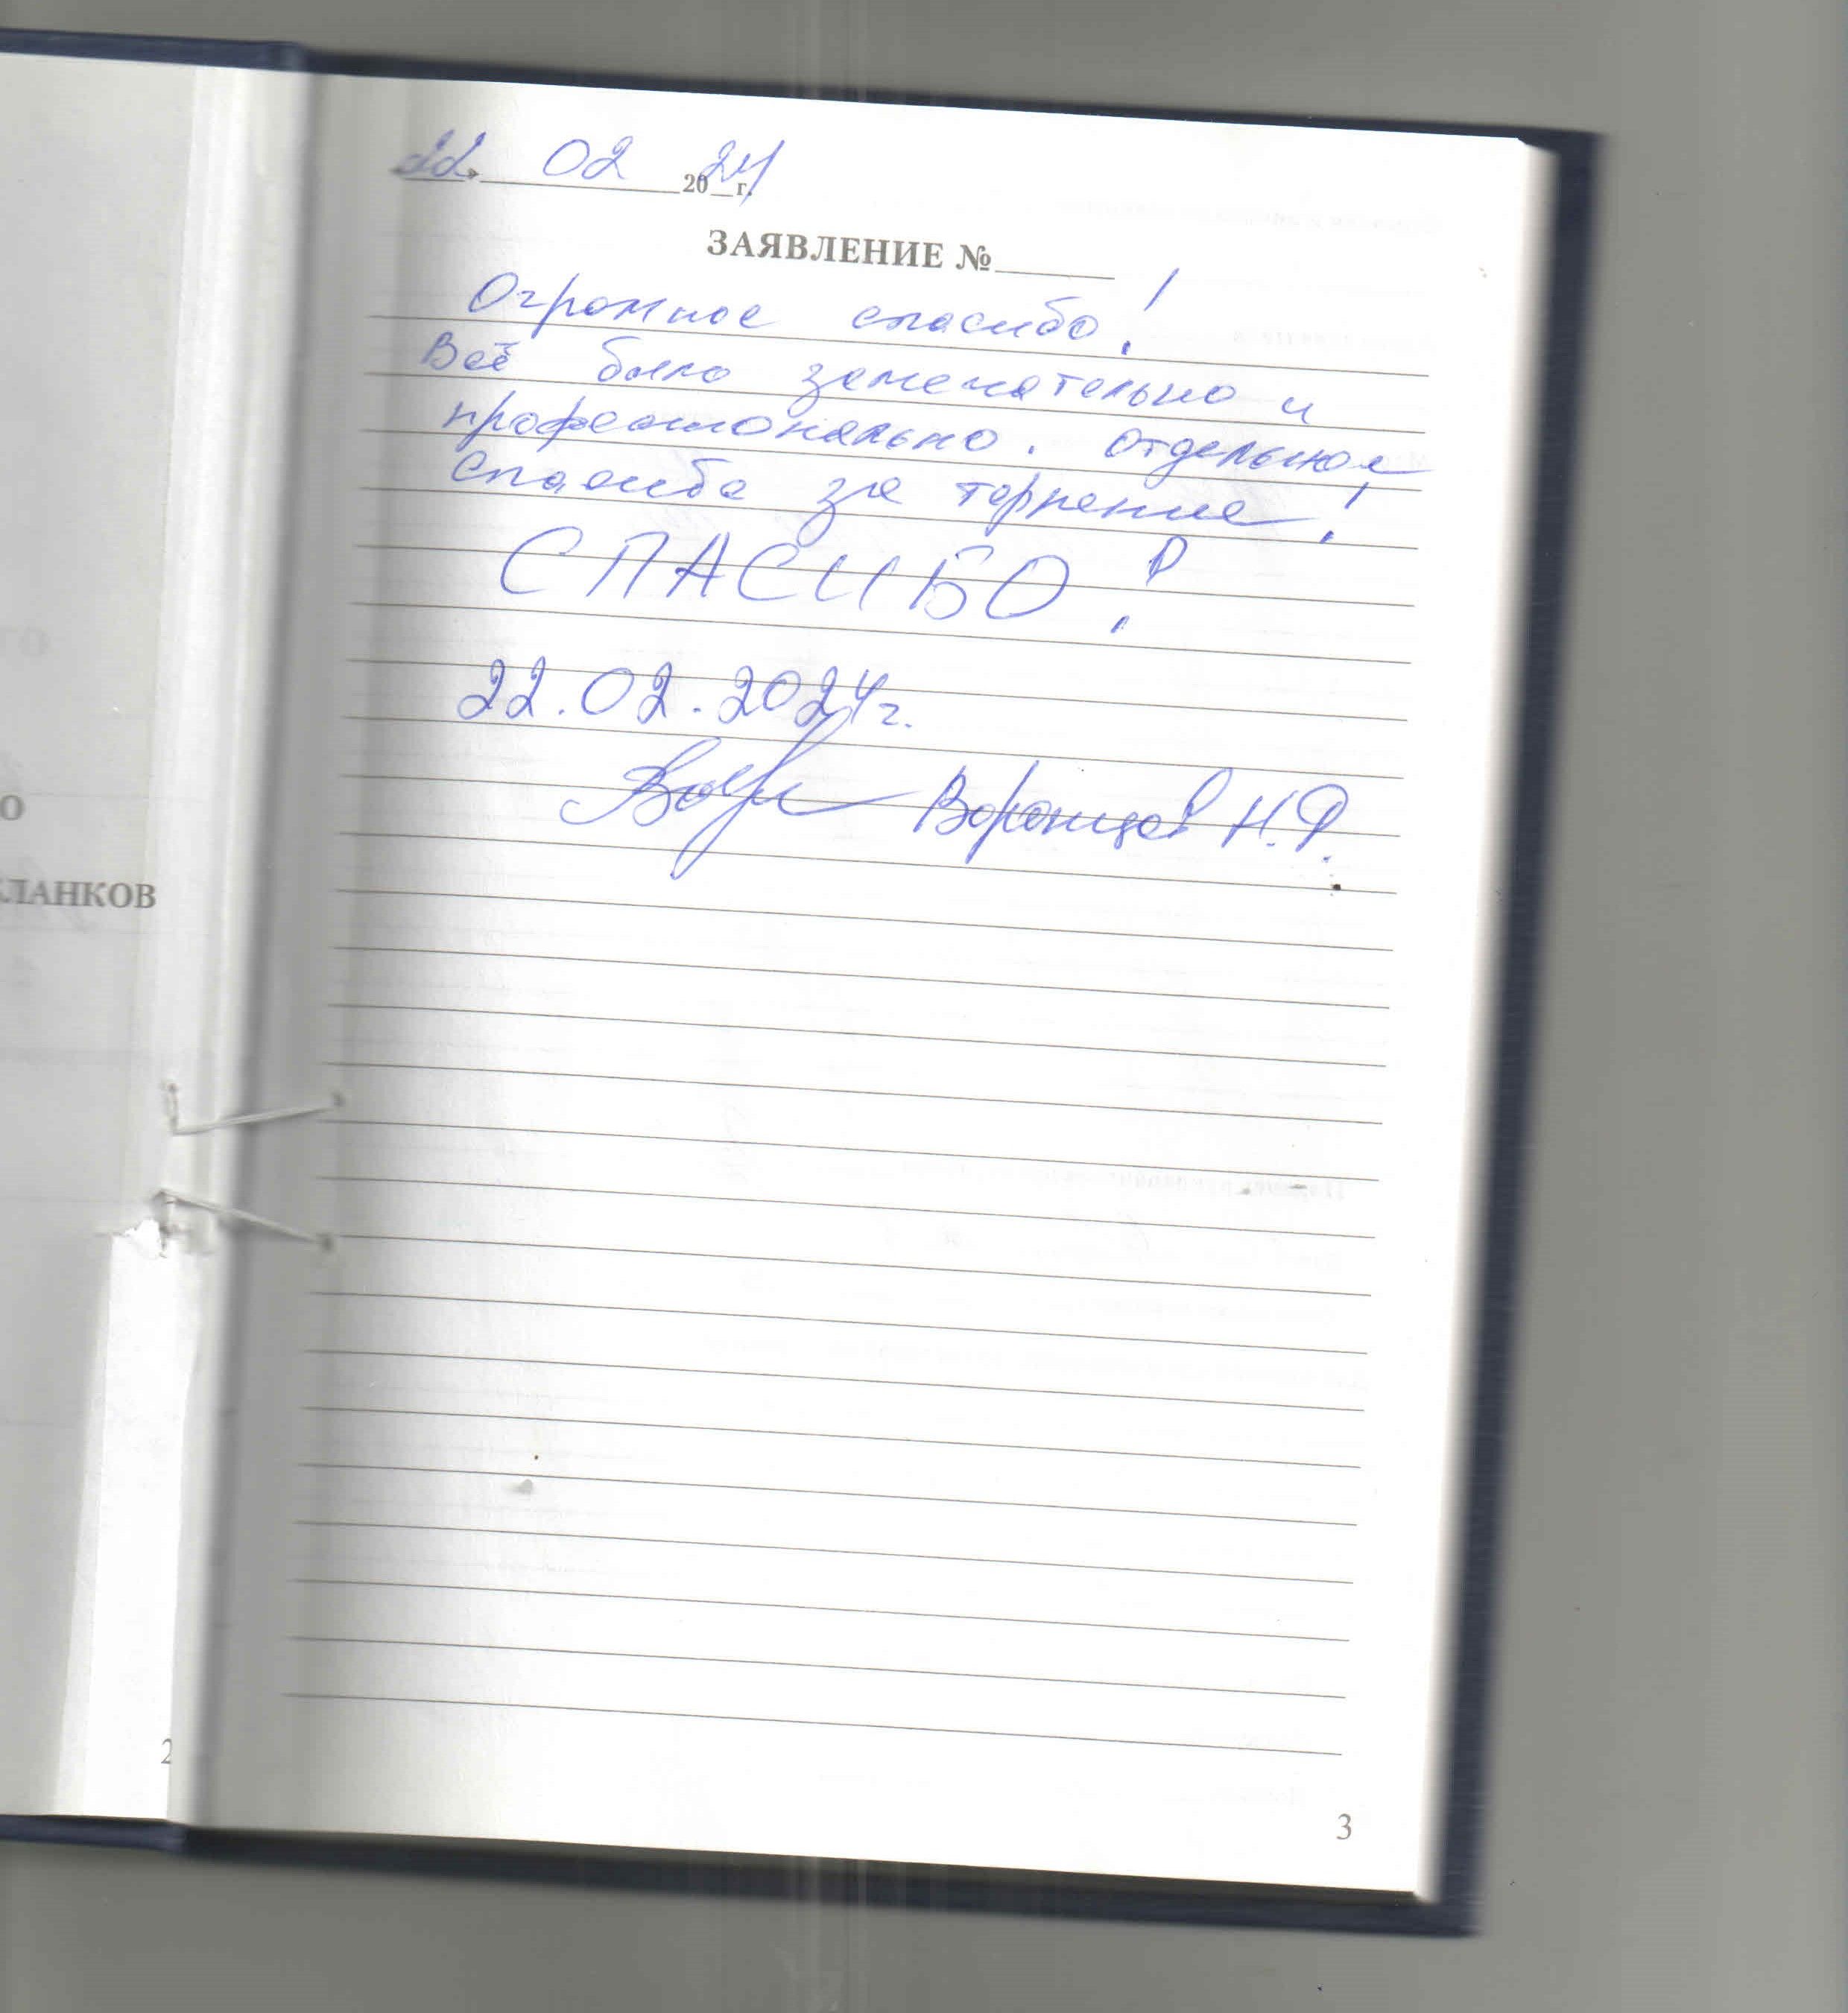 22. 02 2024 г.
ЗАЯВЛЕНИЕ №
Огромное спасибо!
Всё было замечательно и
профессионально. Отдельное
спасибо за терпение!
СПАСИБО!
22.02.2024г.
Воронцов Н.Р.
О
ЛАНКОВ
2
3